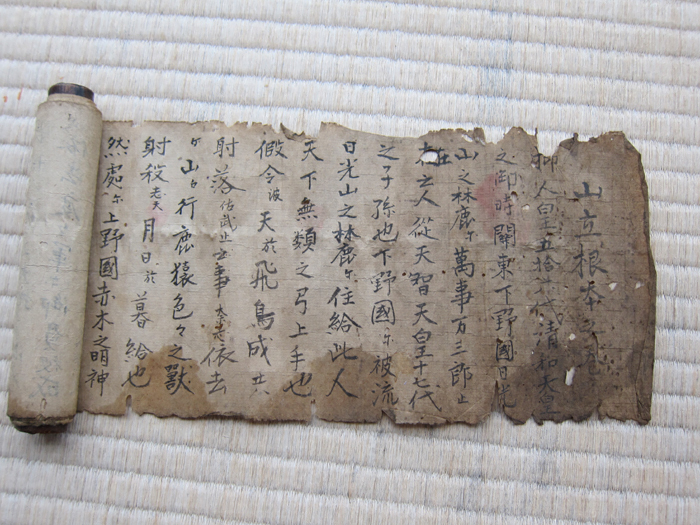 山立根本之巻
抑人皇五拾六代清和天皇
之御時關東下野國日光
山之林鹿尓萬事万三郎止
在之人從天智天皇十七代
之子孫也下野國尓被流
日光山之林鹿尓住給此人
天下無類之弓上手也
假令波天於飛鳥成共
射落 止云事 依去
山 行鹿猿色々之獸
射殺 天月日於暮給也
然處尓上野國赤木之明神